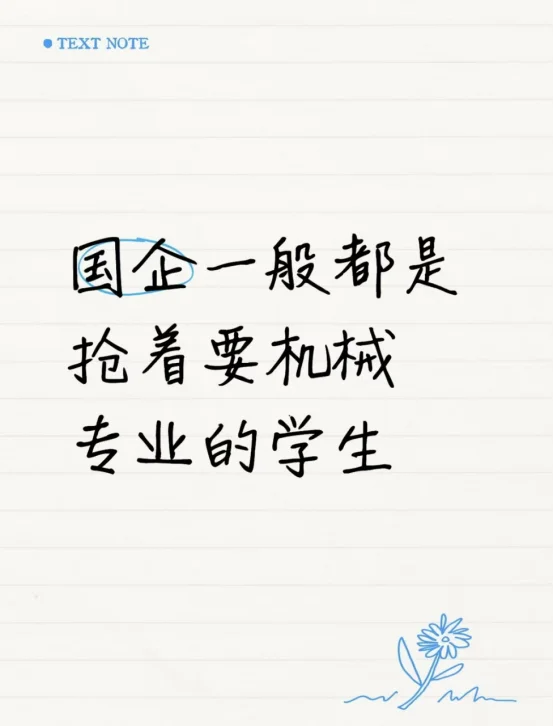 TEXT NOTE
国企一般都是
抢着要机械
专业的学生